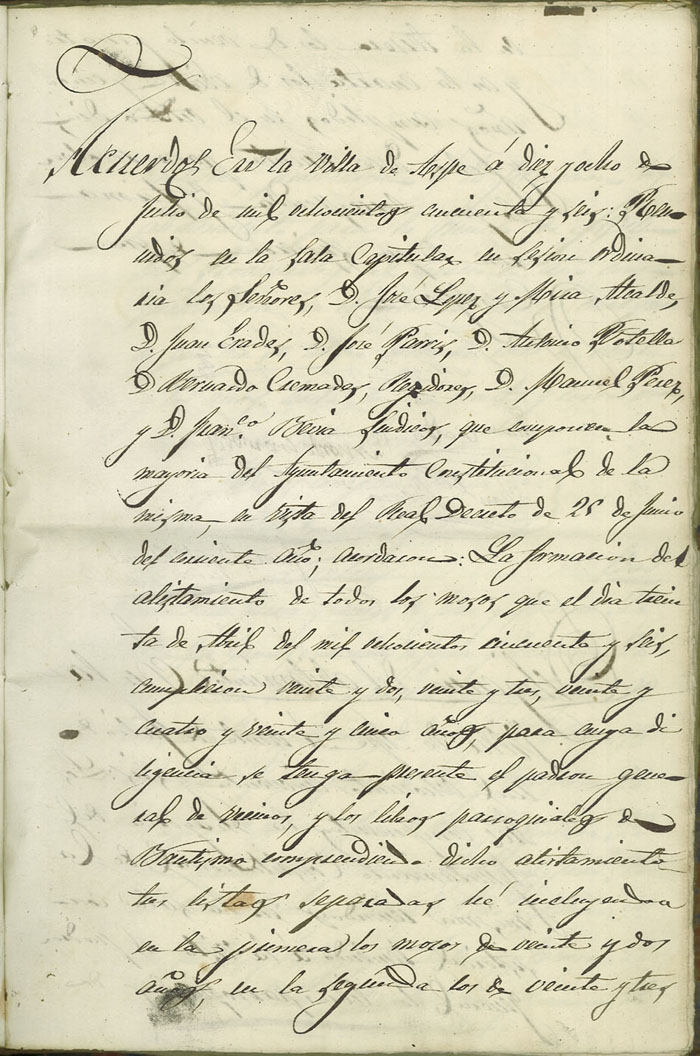 Acuerdos En la Villa de Aspe á diez y ocho de
Julio de mil ochocientos cincuenta y seis: Reu-
nidos en la Sala Capitular en sesion ordina-
ria los Señores, D. José Lopez y Mira Alcalde,
D. Juan Erades, D. José Parris, D. Antonio Botella
D Bernardo Cremades, Regidores, D. Manuel Perez,
y D. Fran.co Beviá Sindicos, que componen la
mayoria del Ayuntamiento Constitucional de la
misma, en vista del Real Decreto de 25 de Junio
del corriente año; acordaron: La formacion del
alistamiento de todos los mozos que el dia trein
ta de Abril del mil ochocientos cincuenta y seis,
cumplieron veinte y dos, veinte y tres, veinte y
cuatro y veinte y cinco años, para cuya di
ligencia se tenga presente el padron gene-
ral de vecinos, y los libros parroquiales de
Bautismo comprendiendo dicho alistamiento
listas separadas incluyendo
en la primera los mozos de veinte y dos
años, en la segunda los de veinte y tres